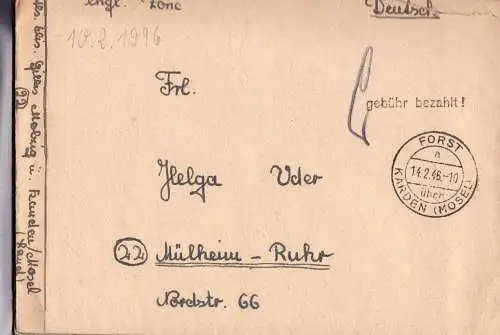 engl. Zone
Deutschl.
10.2.1996
Frl.
gebühr bezahlt!
FORST
a
14.2.46.-10
über
KARDEN (MOSEL)
Helga Uder
(22) Mülheim - Ruhr
Nordstr. 66
(22)
Karden/Mosel
(Land)